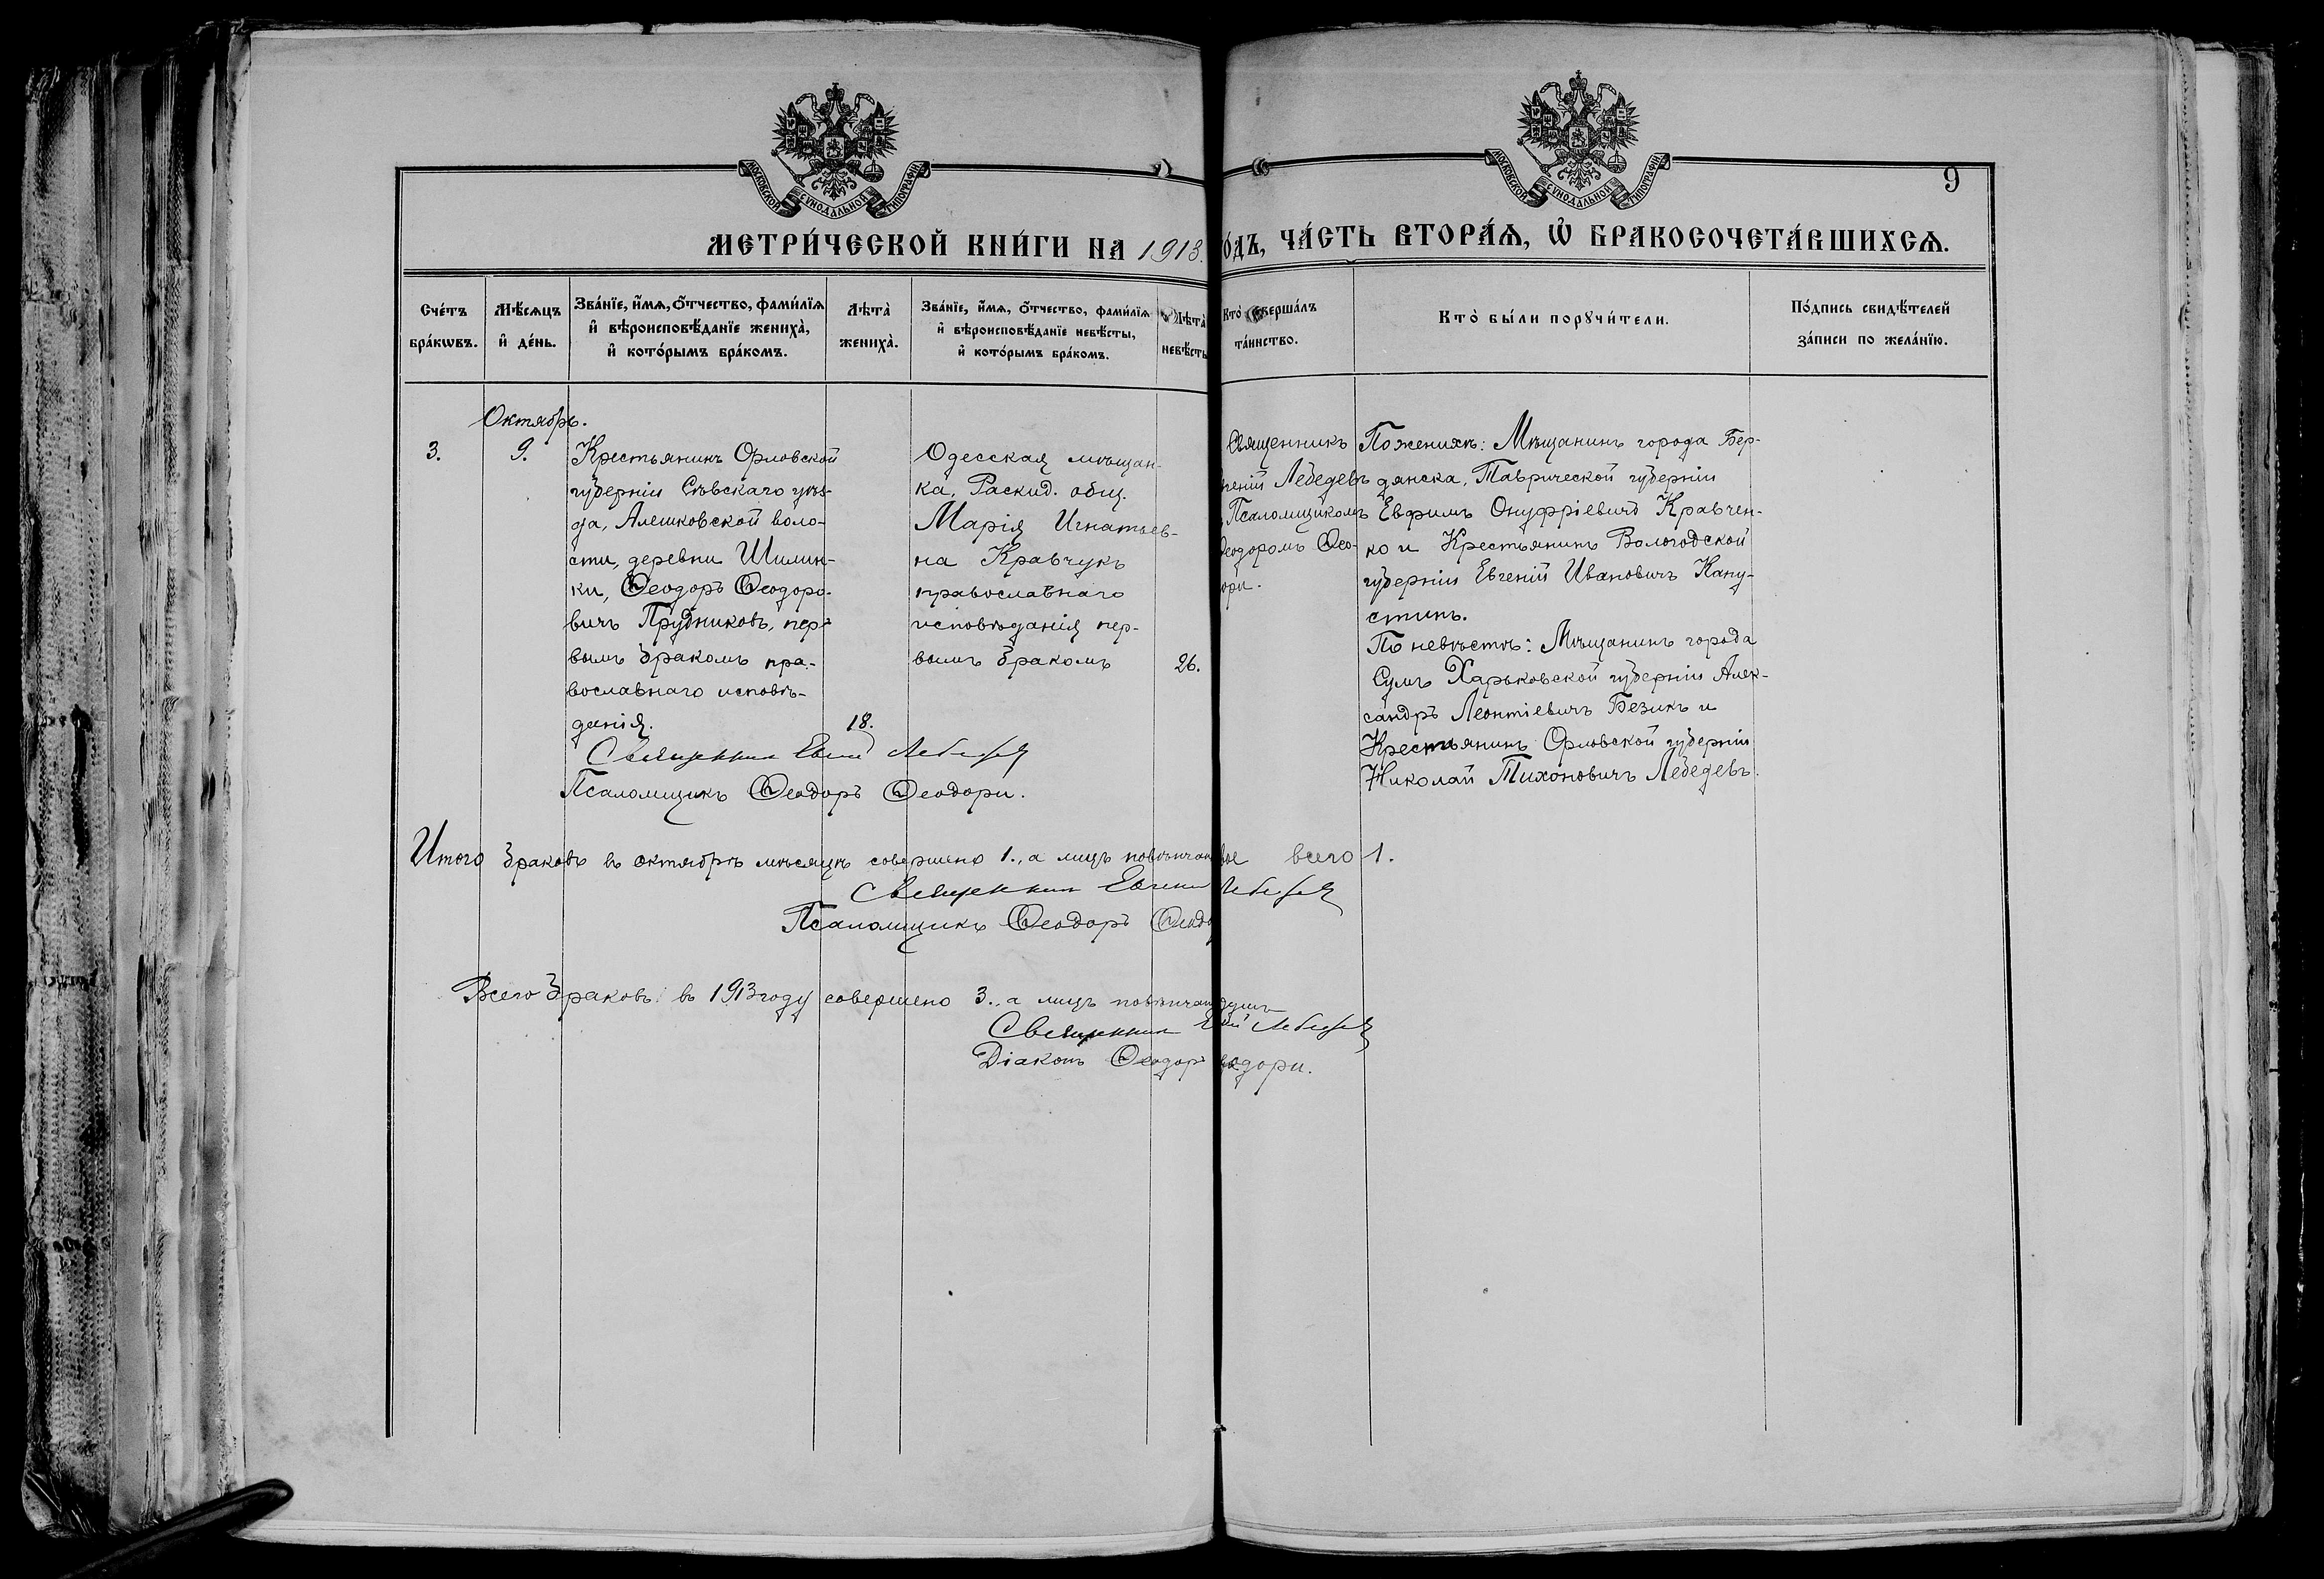 МОСКОВСКОЙ СѴНОДАЛЬНОЙ ТИПОГРАФІИ
МОСКОВСКОЙ СѴНОДАЛЬНОЙ ТИПОГРАФІИ
9
МЕТРИ́ЧЕСКОЙ КНИ́ГИ НА 1913.
О́ДЪ, ЧА́СТЬ ВТОРА́Ѧ, Ѡ҆ БРАКОСОЧЕТА́ВШИХСѦ.
Сче́тъ
бра́кѡвъ.
Мѣ́сѧцъ
и҆ де́нь.
Зва́нїе, и҆́мѧ, ѻ҆́тчество, фами́лїѧ
и҆ вѣроисповѣ́данїе жениха̀,
и҆ кото́рымъ бра́комъ.
Лѣта̀
жениха̀.
Зва́нїе, и҆́мѧ, ѻ҆́тчество, фами́лїѧ
и҆ вѣроисповѣ́данїе невѣ́сты,
и҆ кото́рымъ бра́комъ.
Лѣта̀
невѣ́сты
Кто̀ соверша́лъ
та́инство.
Кто̀ бы́ли порꙋчи́тели.
По́дпись свидѣ́телей
за́писи по жела́нїю.
Октябрь.
3.
9.
Крестьянинъ Орловской
губерніи Сѣвскаго уѣз-
да, Алешковской воло-
сти, деревни Шилин-
ки, Ѳеодоръ Ѳеодоро-
вичъ Прудниковъ, пер-
вымъ бракомъ пра-
вославнаго исповѣ-
данія.
18.
Одесская мѣщан-
ка, Раскид. общ.
Марія Игнатьев-
на Кравчукъ
православнаго
исповѣданія пер-
вымъ бракомъ
26.
Священникъ
геній Лебедевъ
Псаломщикомъ
Ѳеодоромъ Ѳео-
дори.
По женихѣ: Мѣщанинъ города Бер-
дянска, Таврической губерніи
Евфимъ Онуфріевичъ Кравчен-
ко и Крестьянинъ Вологодской
губерніи Евгеній Ивановичъ Капу-
стинъ.
По невѣстѣ: Мѣщанинъ города
Сумъ Харьковской губерніи Алек-
сандръ Леонтіевичъ Безикъ и
Крестьянинъ Орловской губерніи
Николай Тихоновичъ Лебедевъ.
Священник Евгеній Лебедев
Псаломщикъ Ѳеодоръ Ѳеодори.
Итого браковъ въ октябрѣ мѣсяцѣ совершено 1., а лицъ повѣнчан всего 1.
Священник Евгеній Лебедев
Псаломщикъ Ѳеодоръ Ѳеодо
Всего браковъ въ 1913 году совершено 3., а лицъ повѣнчан душъ
Священник Лебедев
Діаконъ Ѳеодоръ Ѳеодори.